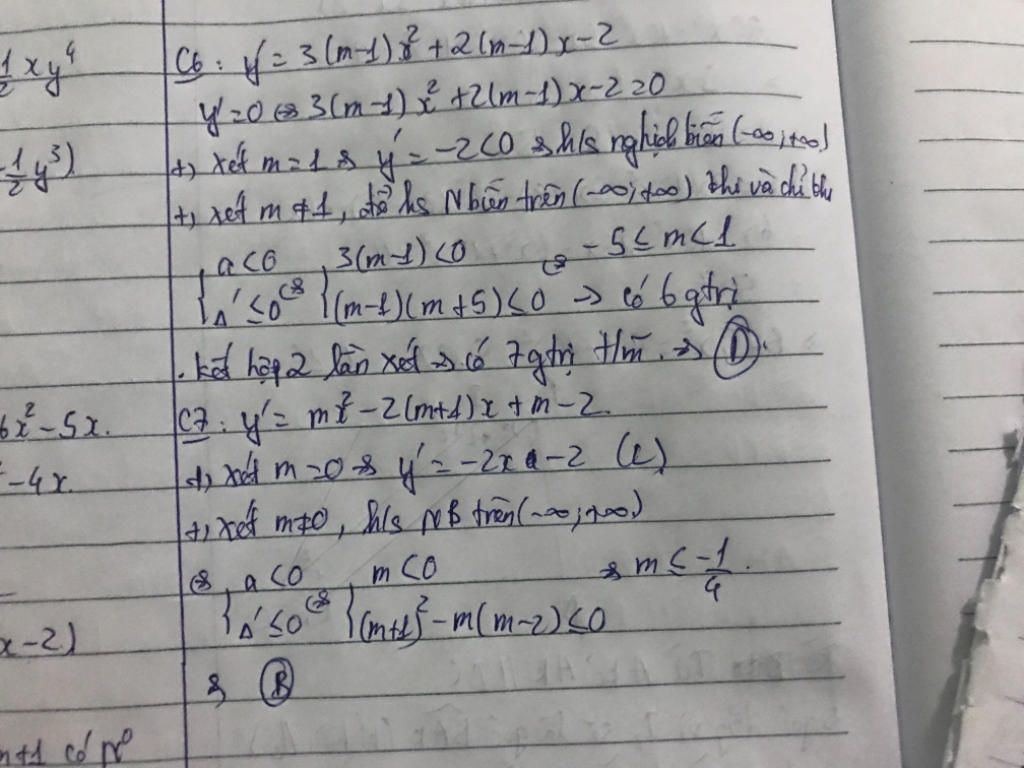 1/2 xy⁴
-1/2 y³)
6x² - 5x.
- 4x.
x - 2)
m+1 có N⁰
C6 : y' = 3(m-1)x² + 2(m-1)x - 2
y' = 0 ⇔ 3(m-1)x² + 2(m-1)x - 2 = 0
+, xét m = 1 ⇒ y' = -2 < 0 ⇒ h/s nghịch biến (-∞; +∞)
+, xét m ≠ 1, để hs N biến trên (-∞; +∞) khi và chỉ khi
{ a < 0 { 3(m-1) < 0 ⇔ -5 ≤ m < 1
Δ' ≤ 0 ⇔ (m-1)(m+5) ≤ 0 → có 6 gtrị
. kết hợp 2 lần xét ⇒ có 7 gtrị t/m. ⇒ D.
C7 : y' = mx² - 2(m+1)x + m - 2.
+, xét m = 0 ⇒ y' = -2x - 2 (L)
+, xét m ≠ 0, h/s NB trên (-∞; +∞)
⇔ { a < 0 { m < 0 ⇒ m ≤ -1/4.
Δ' ≤ 0 ⇔ (m+1)² - m(m-2) ≤ 0
⇒ B